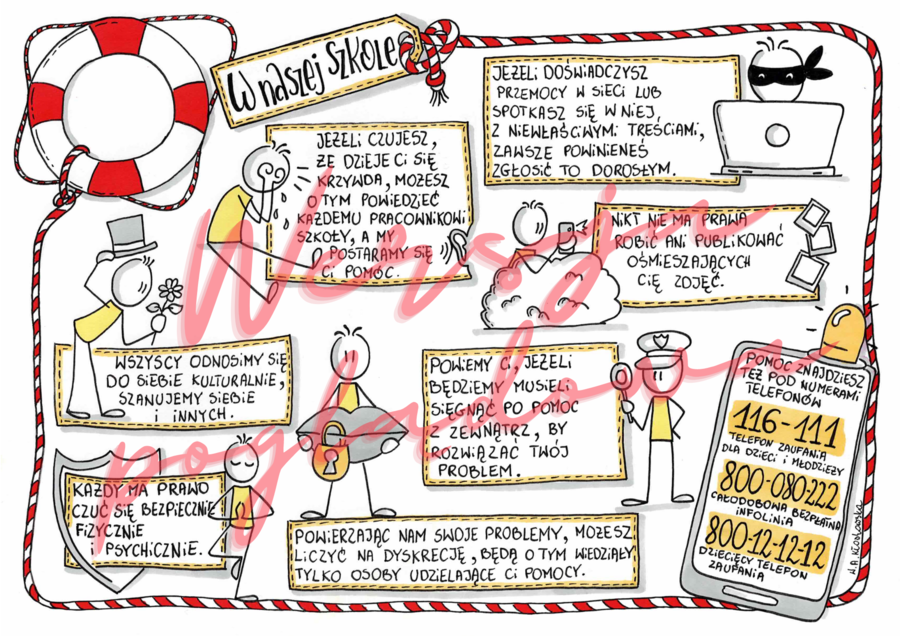 W naszej szkole
JEŻELI DOŚWIADCZYSZ
PRZEMOCY W SIECI LUB
SPOTKASZ SIĘ W NIEJ,
Z NIEWŁAŚCIWYMI TREŚCIAMI,
ZAWSZE POWINIENEŚ
ZGŁOSIĆ TO DOROSŁYM.
JEŻELI CZUJESZ,
ŻE DZIEJE CI SIĘ
KRZYWDA, MOŻESZ
O TYM POWIEDZIEĆ
KAŻDEMU PRACOWNIKOWI
SZKOŁY, A MY
POSTARAMY SIĘ
CI POMÓC.
NIKT NIE MA PRAWA
ROBIĆ ANI PUBLIKOWAĆ
OŚMIESZAJĄCYCH
CIĘ ZDJĘĆ.
WSZYSCY ODNOSIMY SIĘ
DO SIEBIE KULTURALNIE,
SZANUJEMY SIEBIE
I INNYCH.
POWIEMY CI, JEŻELI
BĘDZIEMY MUSIELI
SIĘGNĄĆ PO POMOC
Z ZEWNĄTRZ, BY
ROZWIĄZAĆ TWÓJ
PROBLEM.
KAŻDY MA PRAWO
CZUĆ SIĘ BEZPIECZNIE
FIZYCZNIE
I PSYCHICZNIE.
POWIERZAJĄC NAM SWOJE PROBLEMY, MOŻESZ
LICZYĆ NA DYSKRECJĘ, BĘDĄ O TYM WIEDZIAŁY
TYLKO OSOBY UDZIELAJĄCE CI POMOCY.
POMOC ZNAJDZIESZ
TEŻ POD NUMERAMI
TELEFONÓW
116-111
TELEFON ZAUFANIA
DLA DZIECI I MŁODZIEŻY
800-080-222
CAŁODOBOWA BEZPŁATNA
INFOLINIA
800-12-12-12
DZIECIĘCY TELEFON
ZAUFANIA
Wersja
poglądowa